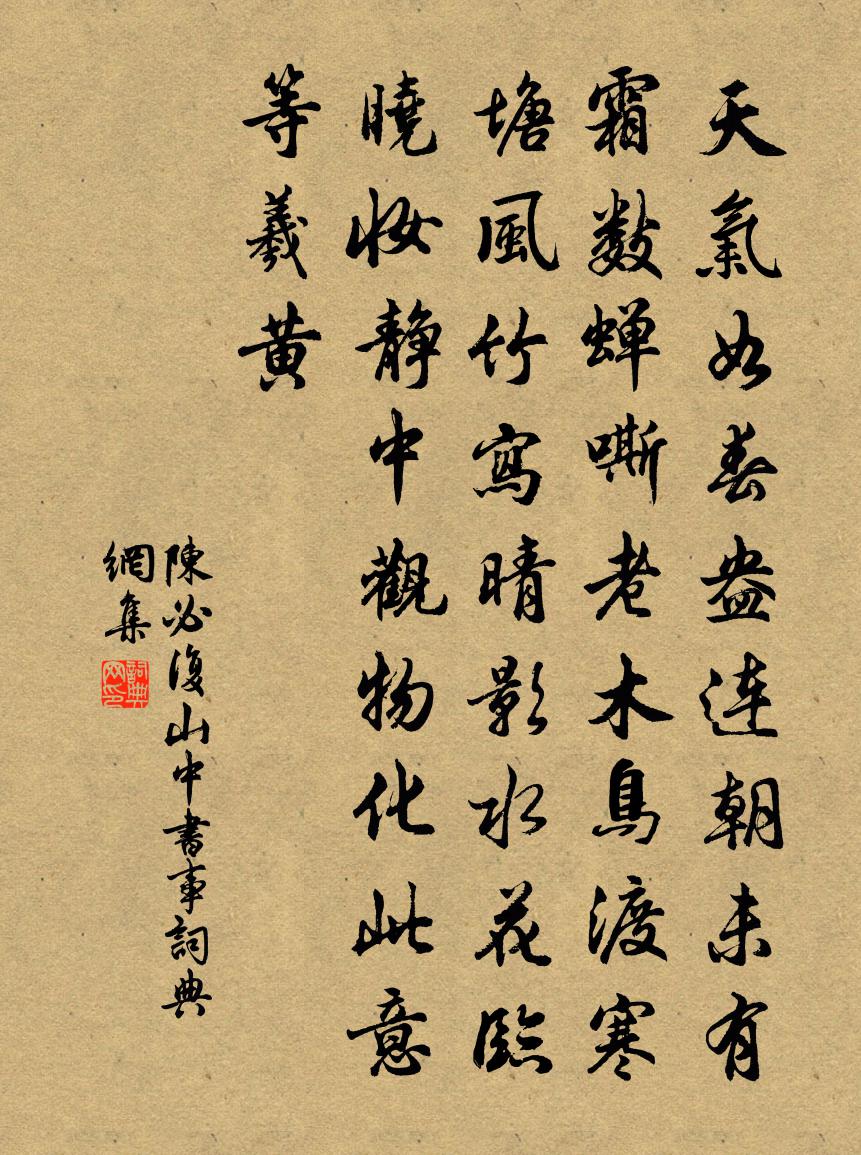 天氣如春盎連朝未有
霜數蟬嘶老木鳥渡寒
塘風竹寫晴影水花臨
曉妝靜中觀物化此意
等羲黄
陳必復山中書事詞典
網集
詞典网印